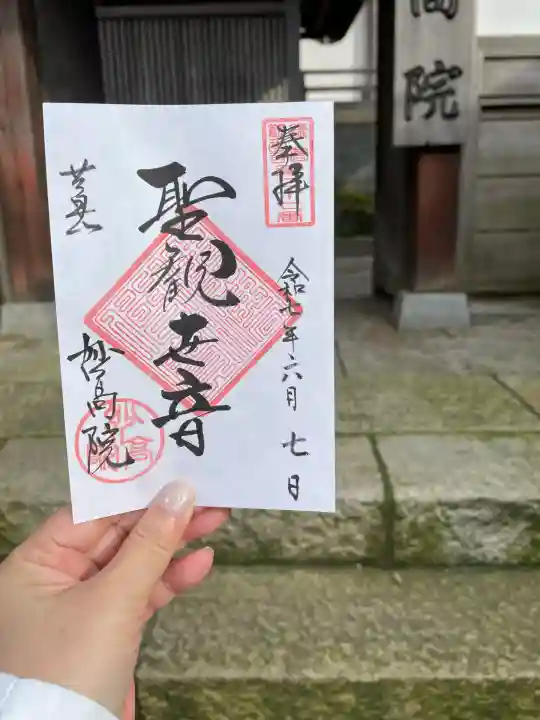 奉拝
令和七年六月七日
聖観世音
妙高院
高院